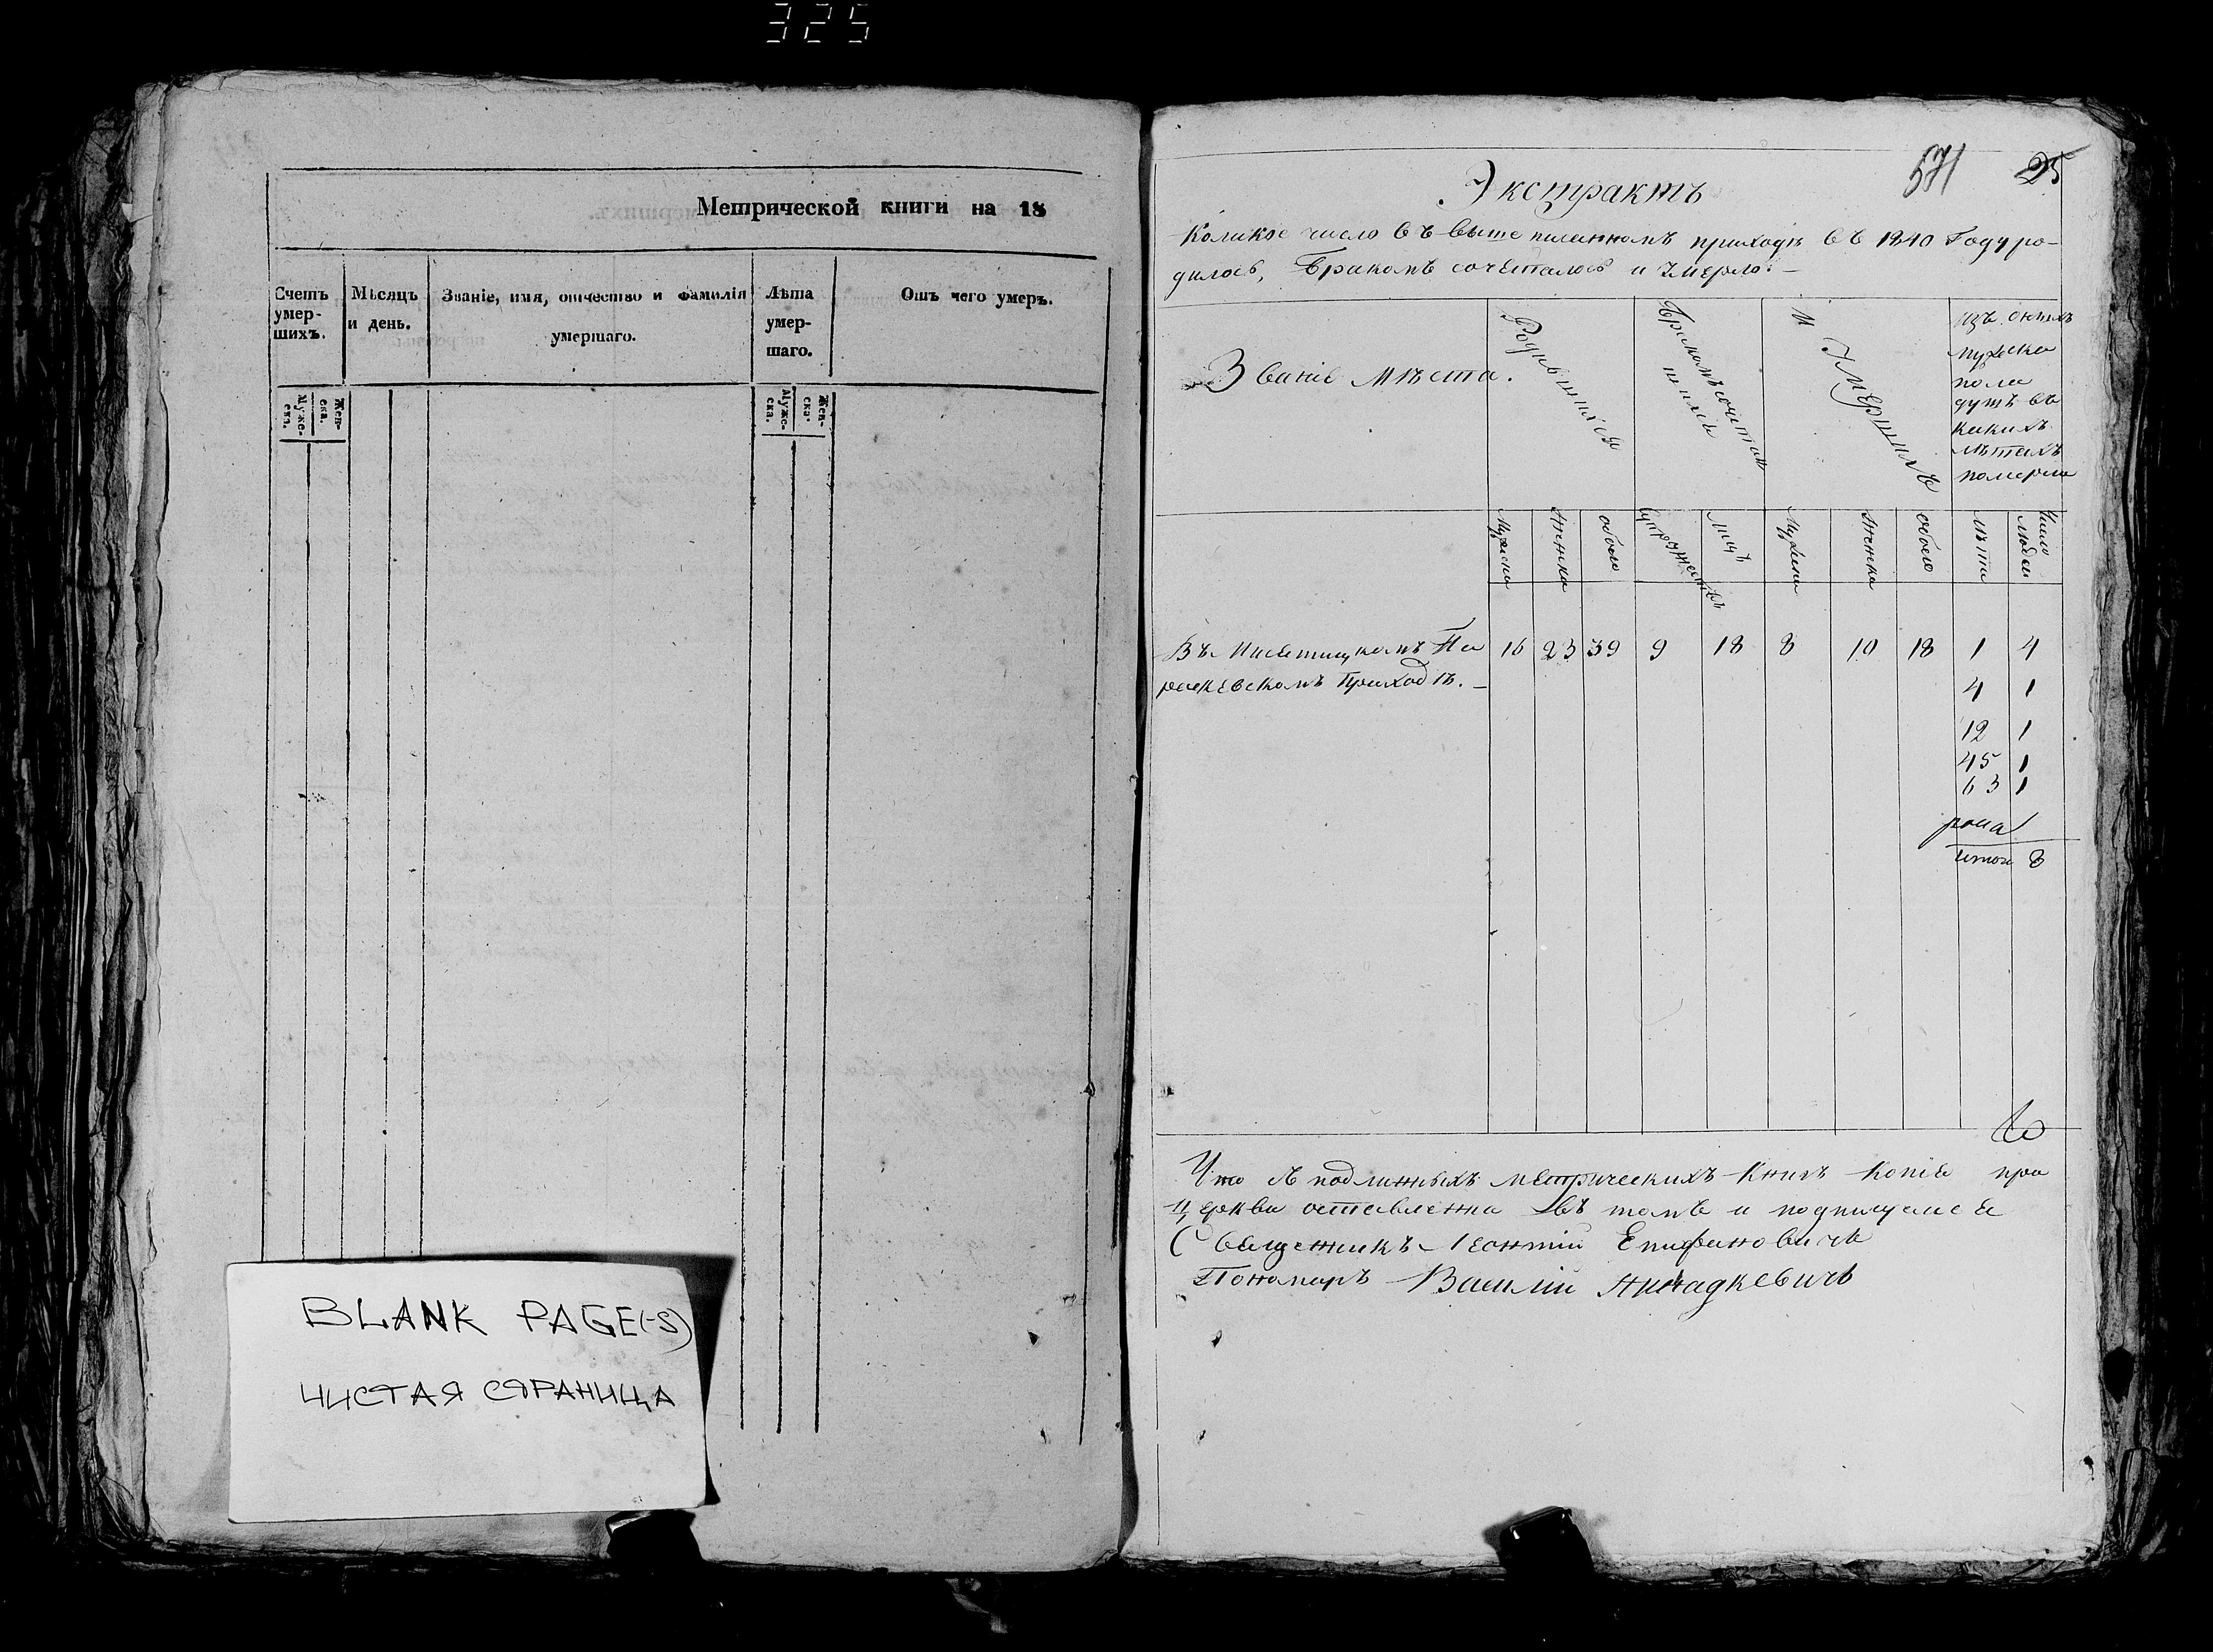 325
Метрической книги на 18
Счетъ умер-шихъ.
Мѣсяцъ и день.
Званіе, имя, отчество и Фамилія умершаго.
Лѣта умер-шаго.
Отъ чего умеръ.
Муже-ска.
Жен-ска.
Муже-ска.
Жен-ска.
BLANK PAGE(-S)
ЧИСТАЯ СТРАНИЦА
571 25
Экстрактъ
Коликое число въ выше писанномъ приходѣ въ 1840 Году ро-
дилось, Бракомъ сочеталось и Умерло: –
Званіе Мѣста.
Родившихся
Бракомъ сочетав
шихся
И Умершихъ
Изъ оныхъ
мужска
пола
душъ въ
какихъ
лѣтахъ
померли
Мужска
Женска
обоего
Супружествъ
лицъ
Мужска
Женска
обоего
лѣта
Число людей
Въ Па 16 23 39 9 18 8 10 18 1 4
раскевскомъ Приходѣ. – 4 1
12 1
45 1
63 1
итого 8
Что съ подлинныхъ метрическихъ Книгъ Копіе при
Церкви оставленна въ томъ и подписуемся
Священникъ Леонтій Епифановичь
Пономаръ Василій